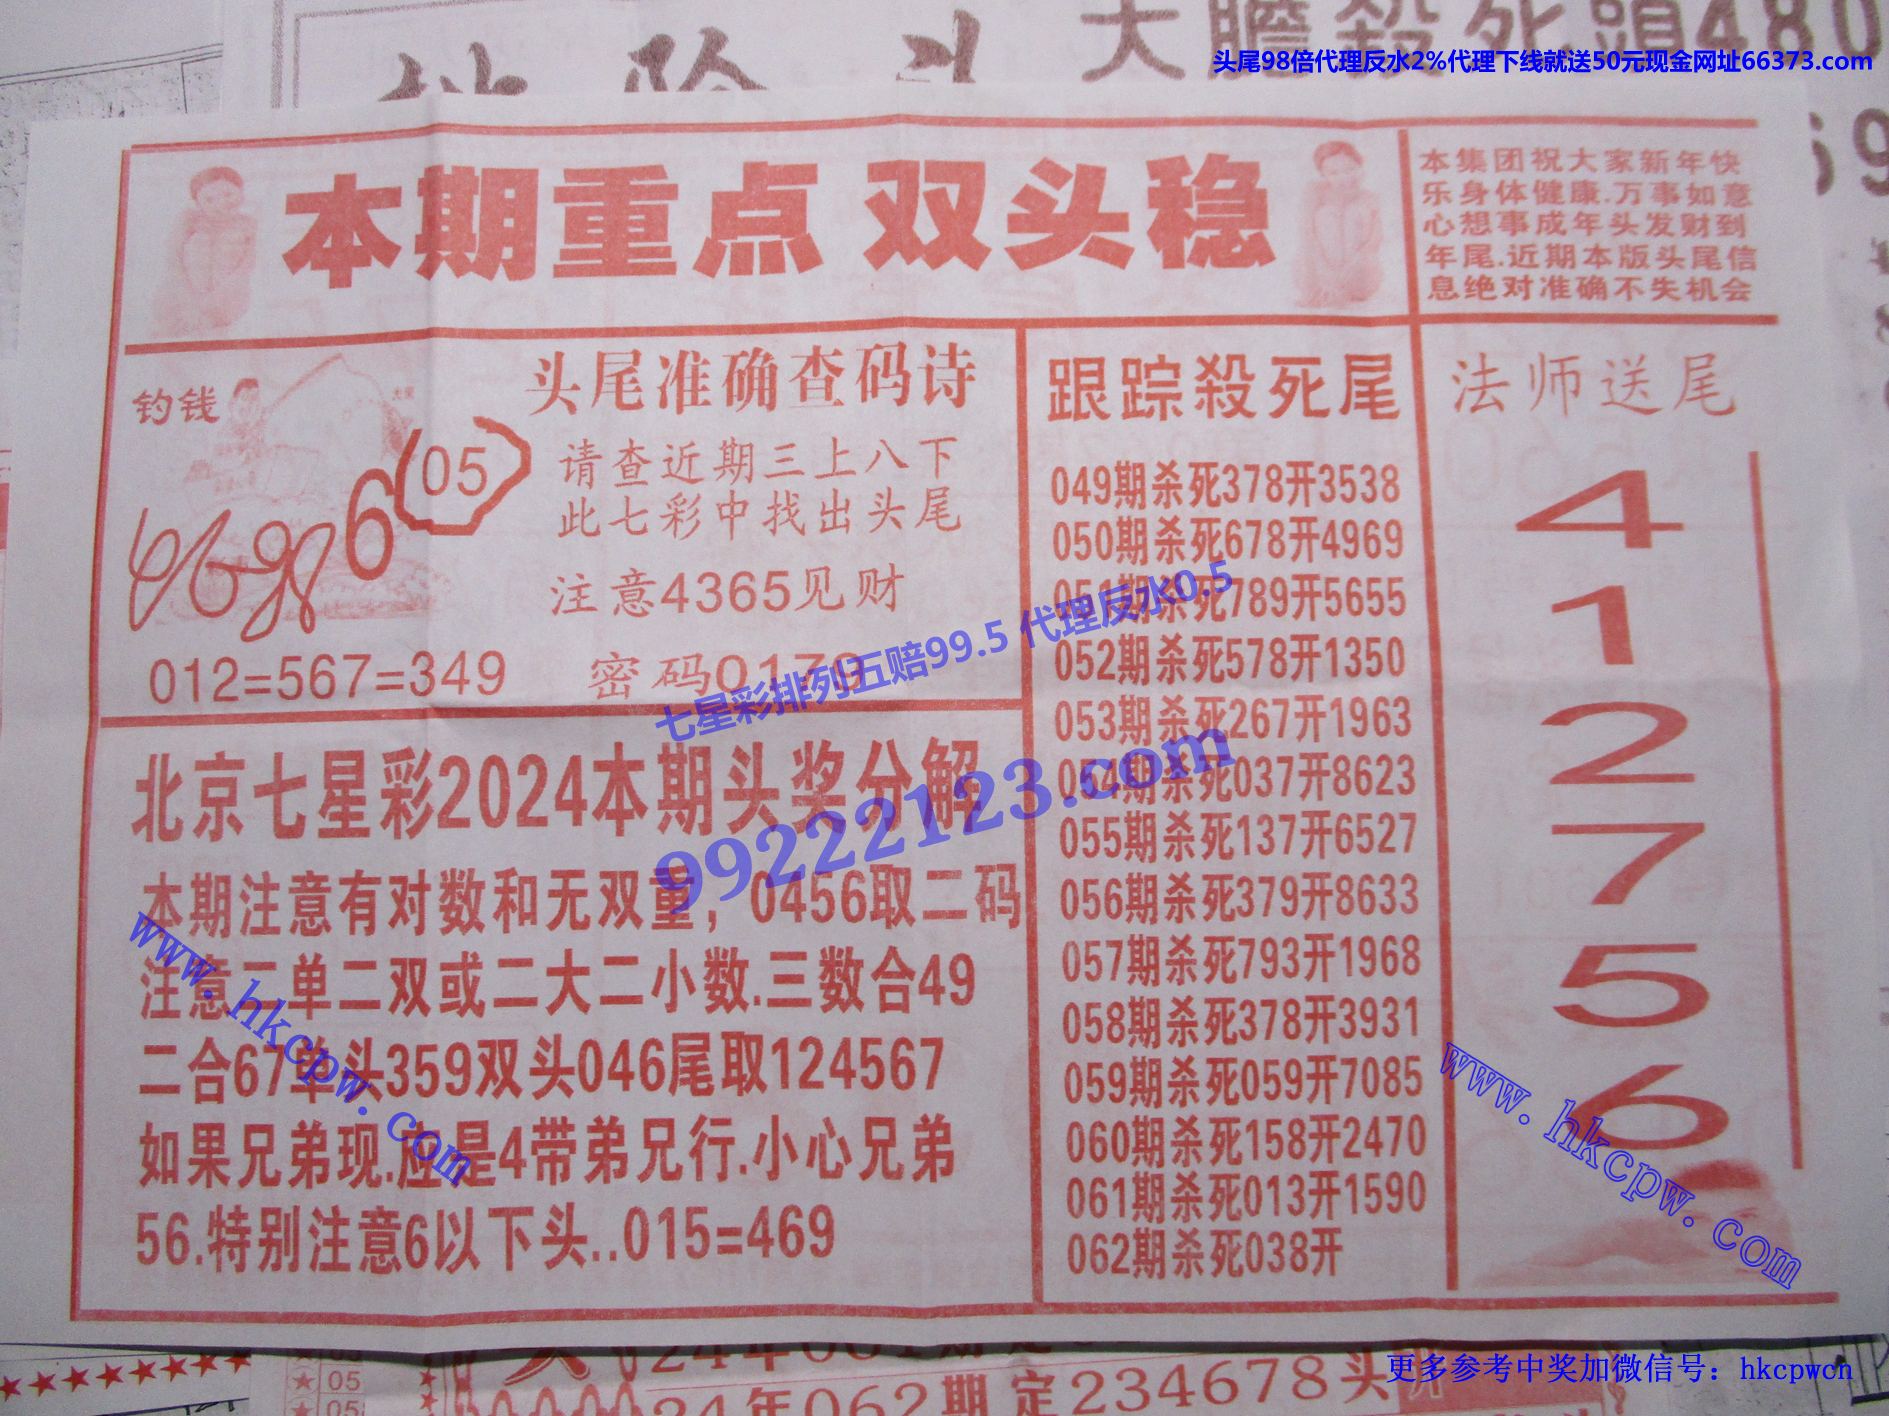 大膽殺死頭480
头尾98倍代理反水2%代理下线就送50元现金网址66373.com
本期重点 双头稳
本集团祝大家新年快
乐身体健康.万事如意
心想事成年头发财到
年尾.近期本版头尾信
息绝对准确不失机会
钓钱
6
05
头尾准确查码诗
请查近期三上八下
此七彩中找出头尾
注意4365见财
012=567=349 密码0179
七星彩排列五赔99.5 代理反水0.5
99222123.com
北京七星彩2024本期头奖分解
本期注意有对数和无双重，0456取二码
注意二单二双或二大二小数.三数合49
二合67单头359双头046尾取124567
如果兄弟现.应是4带弟兄行.小心兄弟
56.特别注意6以下头..015=469
www.hkcpw.com
跟踪殺死尾
049期杀死378开3538
050期杀死678开4969
051期杀死789开5655
052期杀死578开1350
053期杀死267开1963
054期杀死037开8623
055期杀死137开6527
056期杀死379开8633
057期杀死793开1968
058期杀死378开3931
059期杀死059开7085
060期杀死158开2470
061期杀死013开1590
062期杀死038开
法师送尾
4
1
2
7
5
6
www.hkcpw.com
05
24年062期定234678头
更多参考中奖加微信号：hkcpwcn